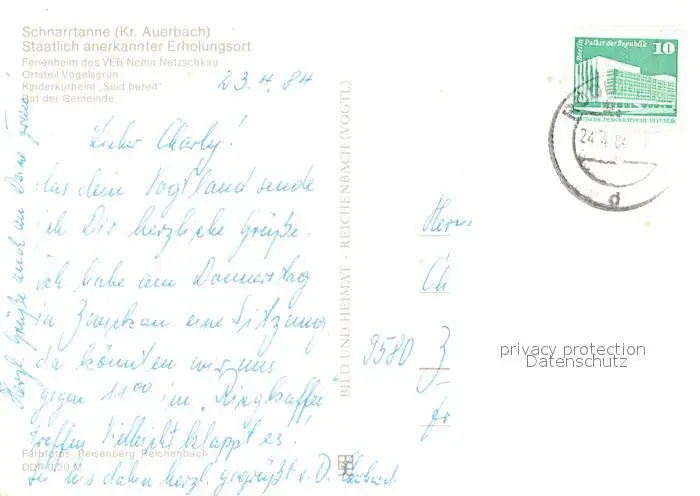 Schnarrtanne (Kr. Auerbach)
Staatlich anerkannter Erholungsort
Ferienheim des VEB Nema Netzschkau
Ortsteil Vogelsgrün
Kinderkurheim "Seid bereit"
Rat der Gemeinde
23.4.84
Lieber Charly!
Aus dem Vogtland sende
ich Dir herzliche Grüße.
Ich habe am Donnerstag
in Zwickau eine Sitzung,
da könnten wir uns
gegen 11 00 im "Ringkaffee"
treffen. Vielleicht klappt es.
bis dahin herzl. gegrüßt v. D.
Herzl. Grüße auch an Deine
Farbfotos: Reisenberg, Reichenbach
DDR 0,20 M
BILD UND HEIMAT · REICHENBACH (VOGTL)
Berlin Palast der Republik
10
DEUTSCHE DEMOKRATISCHE REPUBLIK
24.4.84
d
Herrn
Ch
9580 Z
privacy protection
Datenschutz